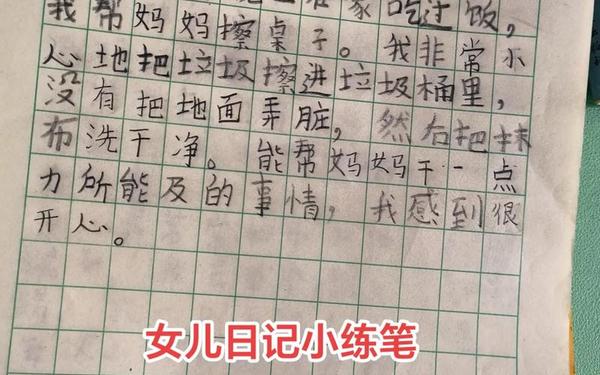 家吃过饭，
我帮妈妈擦桌子。我非常小
心地把垃圾擦进垃圾桶里，
没有把地面弄脏，然后把抹
布洗干净。能帮妈妈干一点
力所能及的事情，我感到很
开心。
女儿日记小练笔